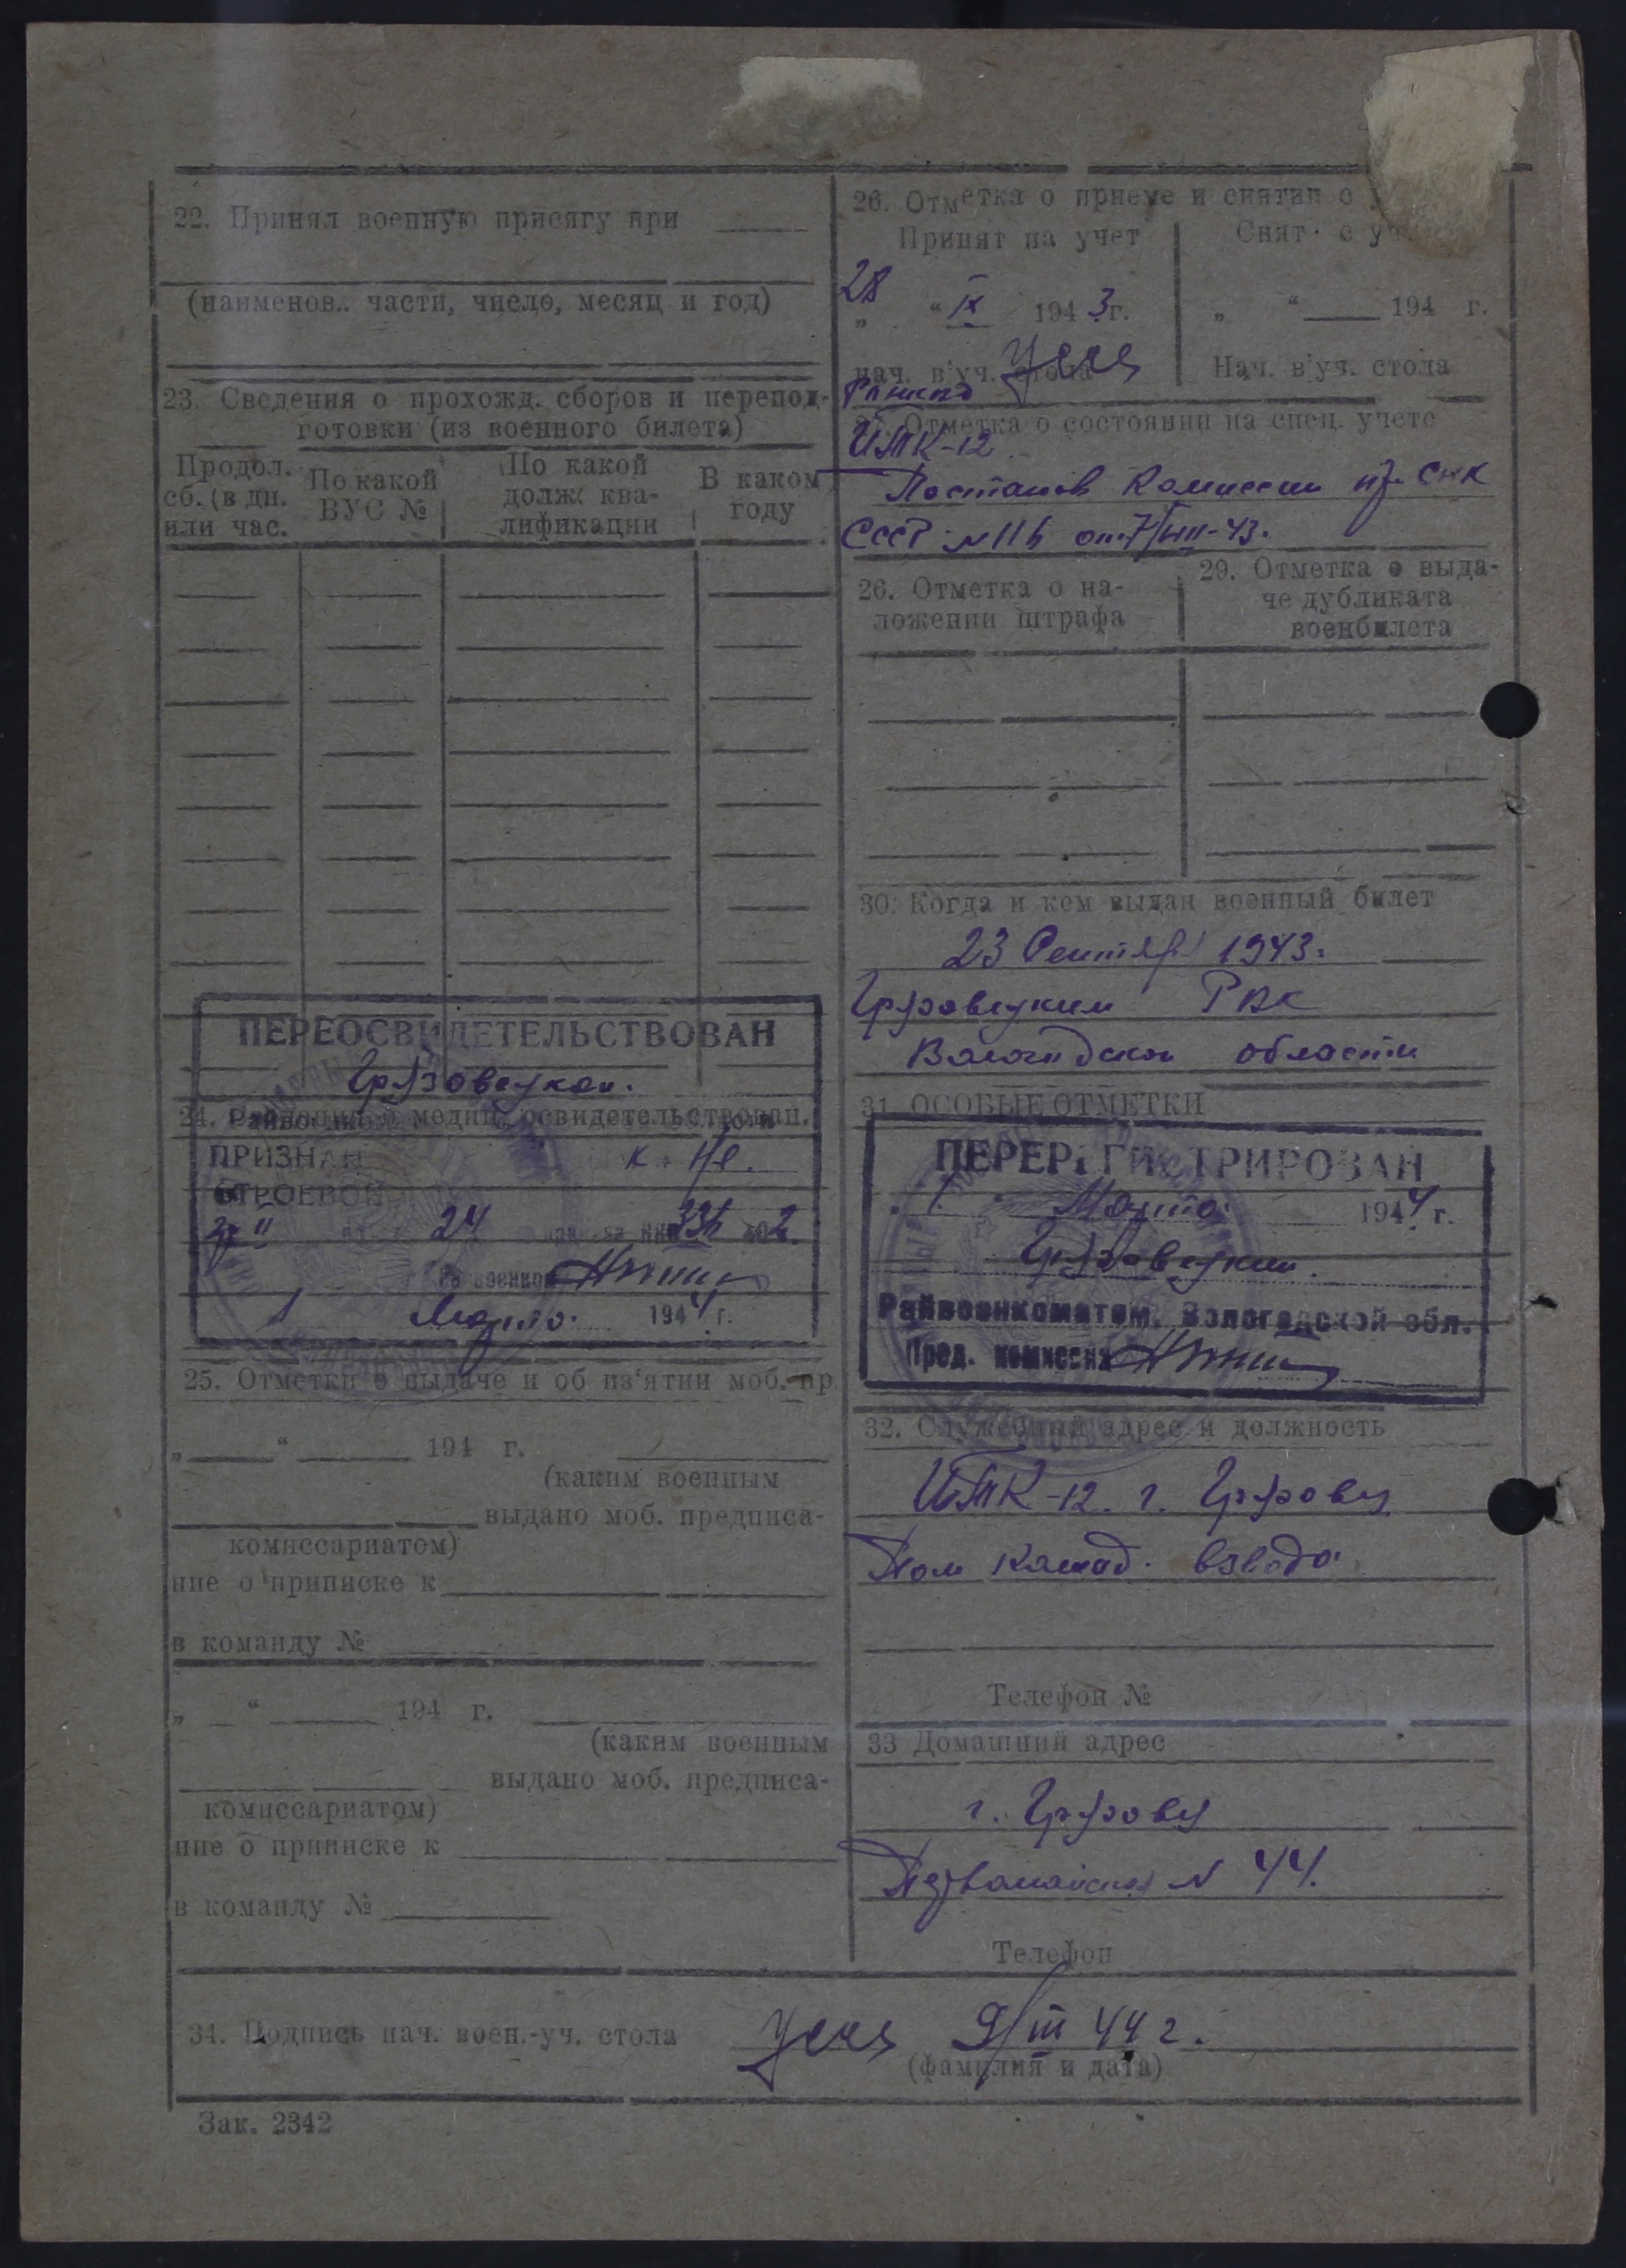 22. Принял военную присягу при
(наименов.. части, число, месяц и год)
23. Сведения о прохожд. сборов и перепод-
готовки (из военного билета)
Продол. сб. (в дн. или час.
По какой ВУС №
По какой долж. ква-
лификации
В каком году
ПЕРЕОСВИДЕТЕЛЬСТВОВАН
Грязовецком
24. медиц. освидетельствован.
ПРИЗНАН к не
СТРОЕВОЙ
24 336 2
1 Марта 1944 г.
25. Отметки о выдаче и об из'ятии моб. пр
„ “ 194 г.
(каким военным
выдано моб. предписа-
комиссариатом)
ние о приписке к
в команду №
„ “ 194 г.
(каким военным
выдано моб. предписа-
комиссариатом)
ние о приписке к
в команду №
26. Отметка о приеме и снятии с
Принят на учет
Снят с уч
28 “ IX 1943 г.
„ “ 194 г.
нач. в'уч. стола
Нач. в'уч. стола
27. Отметка о состоянии на спец. учете
ИТК-12
Постанов Комиссии при СНК
СССР №116 от 7/VIII-43.
26. Отметка о на-
ложении штрафа
29. Отметка о выда-
че дубликата
военбилета
30. Когда и кем выдан военный билет
23 Сентябр 1943.
Грязовецким РВК
Вологодской области
31. ОСОБЫЕ ОТМЕТКИ
ПЕРЕРЕГИСТРИРОВАН
1 Марта 1944 г.
Грязовецким
Райвоенкоматом, Вологодской обл.
Пред. комиссии
32. Служебный адрес и должность
ИТК-12. г. Грязовец
Пом Команд. взвода
Телефон №
33 Домашний адрес
г. Грязовец
Первомайская № 44.
Телефон
34. Подпись нач. воен.-уч. стола 9/III 44 г.
(фамилия и дата)
Зак. 2342